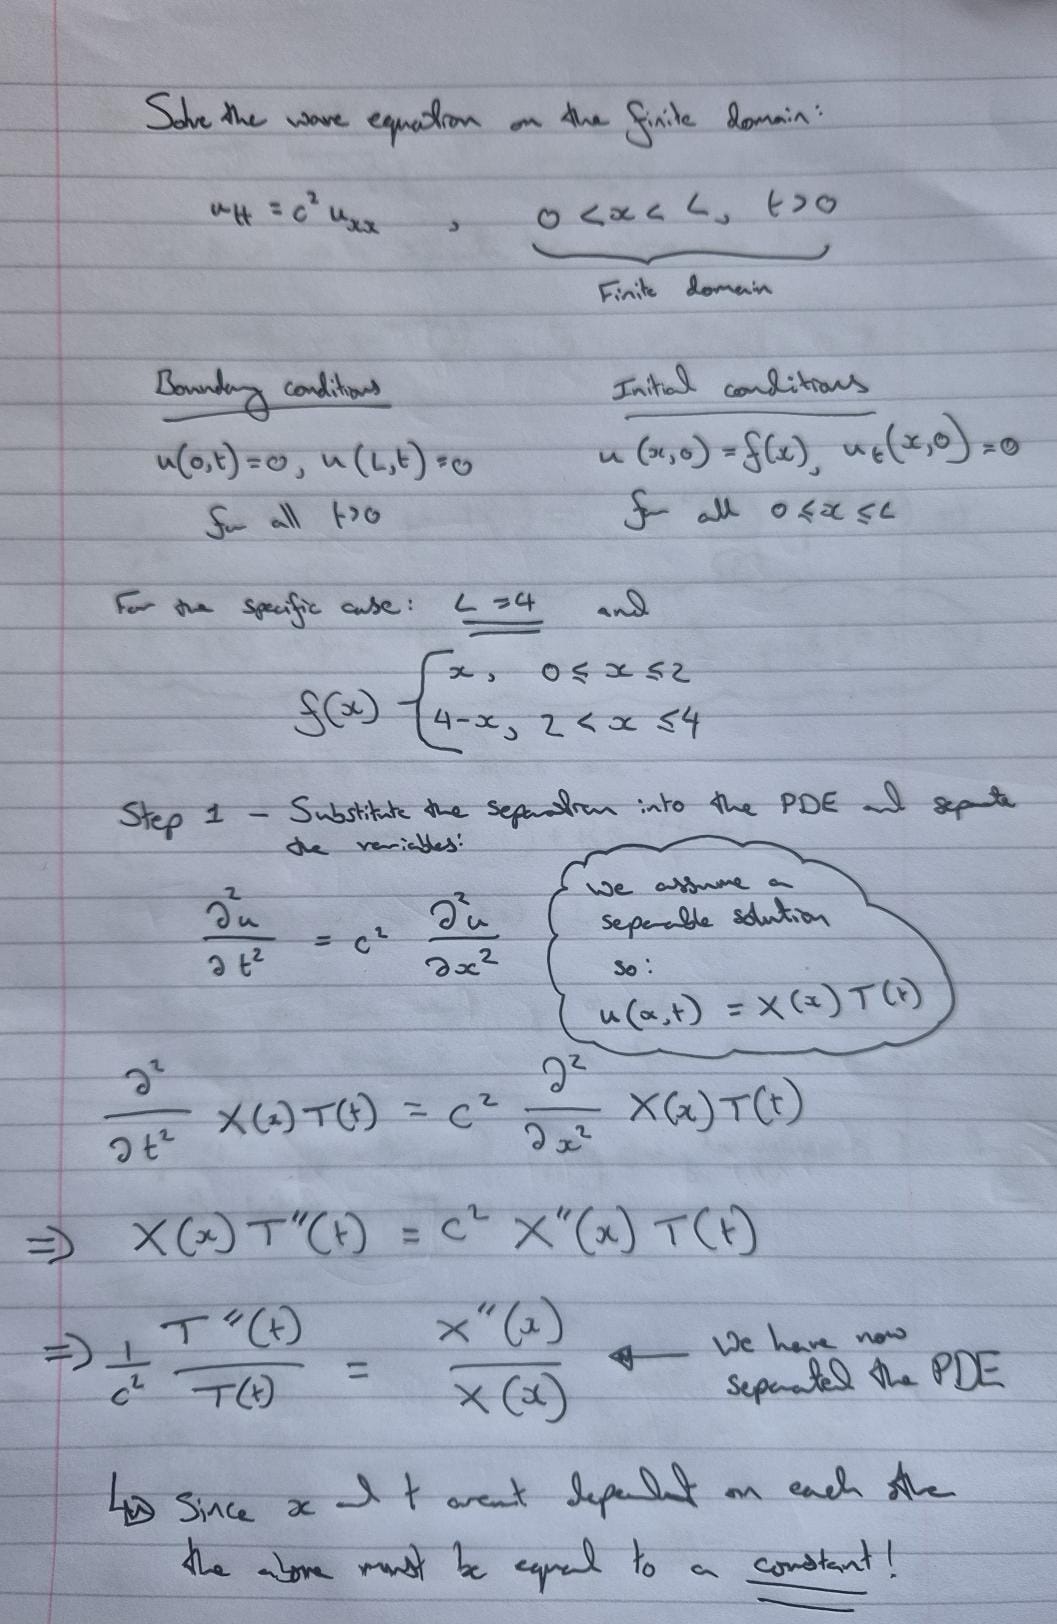 Solve the wave equation on the finite domain:
u_tt = c² u_xx , 0 < x < L, t > 0
Finite domain
Boundary conditions
Initial conditions
u(0,t) = 0, u(L,t) = 0
u(x,0) = f(x), u_t(x,0) = 0
for all t>0
for all 0 ≤ x ≤ L
For the specific case: L = 4 and
f(x) { x, 0 ≤ x ≤ 2
4-x, 2 < x ≤ 4
Step 1 - Substitute the separation into the PDE and separate
the variables:
∂²u/∂t² = c² ∂²u/∂x²
We assume a
separable solution
so:
u(x,t) = X(x) T(t)
∂²/∂t² X(x) T(t) = c² ∂²/∂x² X(x) T(t)
⇒ X(x) T''(t) = c² X''(x) T(t)
⇒ 1/c² T''(t)/T(t) = X''(x)/X(x) ← We have now
separated the PDE
↳ Since x and t arent dependent on each other
the above must be equal to a constant!